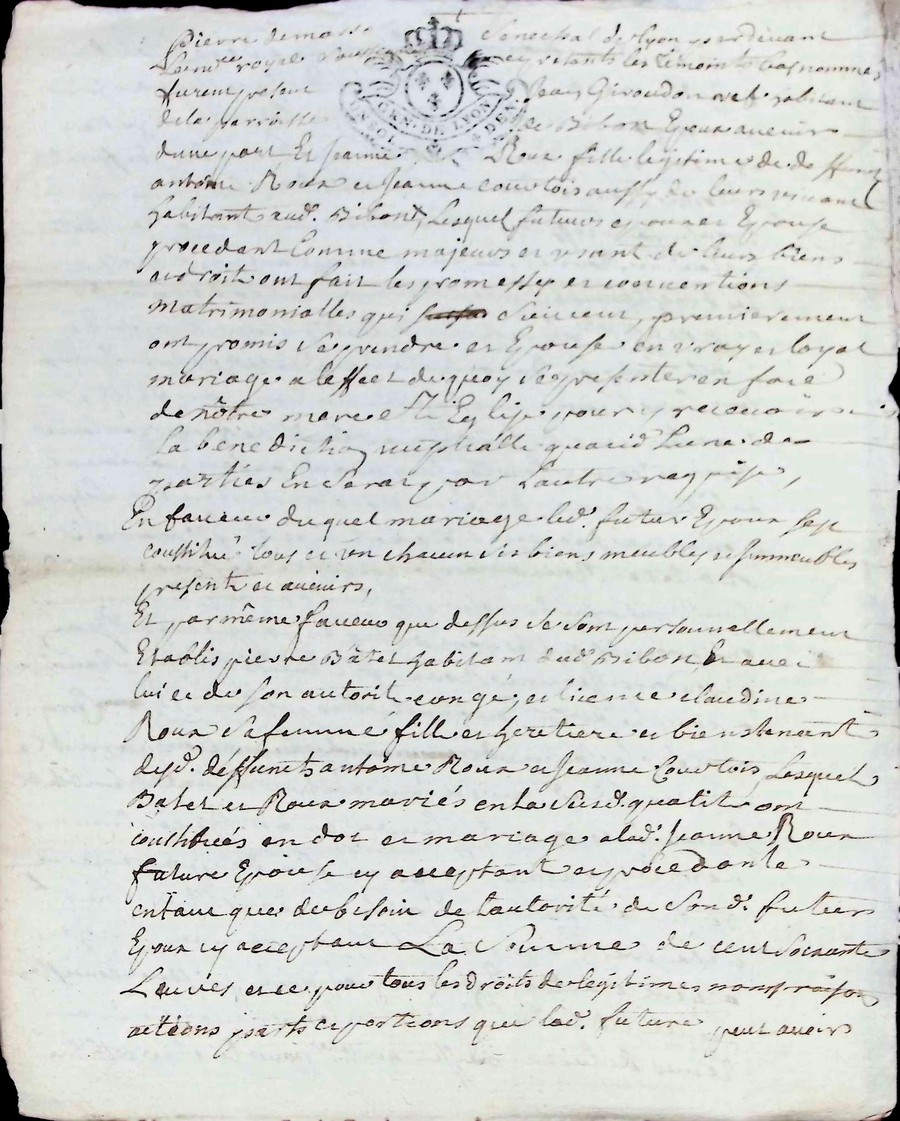 Pierre demasse Senechal de lyon pardevant
Le nore royal soussigné et presents les témoints bas nommes
furent present Jean Giroudon habitant
de la parroisse de Bibost Epoux avenir
dune part Et Jeanne Roux fille legitime de deffunt
antoine Roux et Jeanne courtois aussy de leurs vivant
habitant aud. Bibost, Lesquel futurs epoux et Epouse
procedant Comme majeurs et usant de leurs biens
et droit ont fait les promesses et conventions
matrimonialles qui suivent, premierement
ont promis se prendre et Epouse en vray et loyal
mariage a leffect de quoy se presenter en face
de nôtre mere ste Eglise pour y recevoir
la bénédiction nuptialle quand Lune des
parties En sera par Lautre requise,
En faveur duquel mariage led. futur Epoux sest
constitué tous et un chacun ses biens meubles et Immeubles
present et avenirs,
Et par même faveur que dessus se sont personnellement
Etablis pierre Bâtet habitant dud. Bibost Et avec
lui et de son autorité congé, et licence claudine
Roux sa femme fille et heretiere et bienstenant
desd. deffuncts antoine Roux et Jeanne Courtois, Lesquel
Batet et Roux mariés en la susd. qualité ont
constitués en dot et mariage a lad. Jeanne Roux
future Epouse cy acceptant et procedante
entant que de besoin de lautorité de Sond. futur
Epoux cy acceptant La Somme de cent soixante
Livres et ce pour tous les droits de legitimes noms raisons
actions parts et portions que lad. future peut avoir